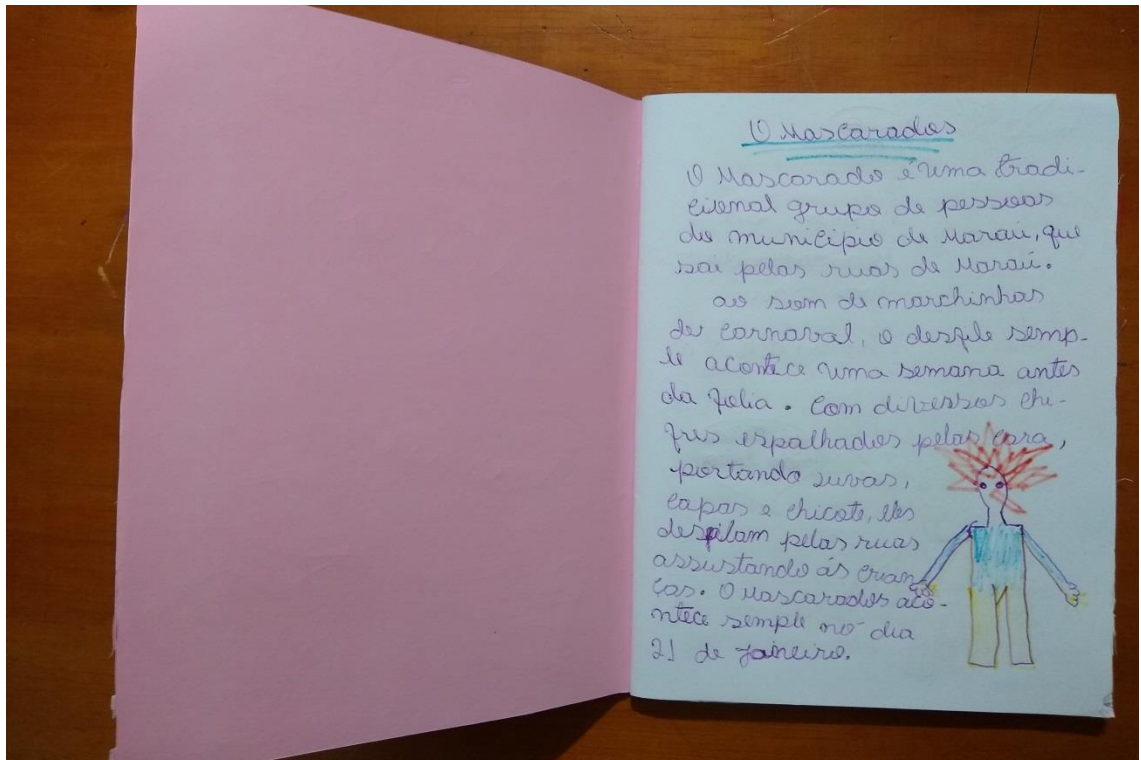 O Mascarados
O Mascarado é uma tradi-
cional grupo de pessoas
do município de Maraú, que
sai pelas ruas de Maraú.
ao som de marchinhas
de carnaval, o desfile semp-
le acontece uma semana antes
da folia. Com diversos chi-
fres espalhados pelas cara,
portando luvas,
capas e chicote, eles
desfilam pelas ruas
assustando ás crian
ças. O Mascarados aco-
ntece semple no dia
21 de janeiro.